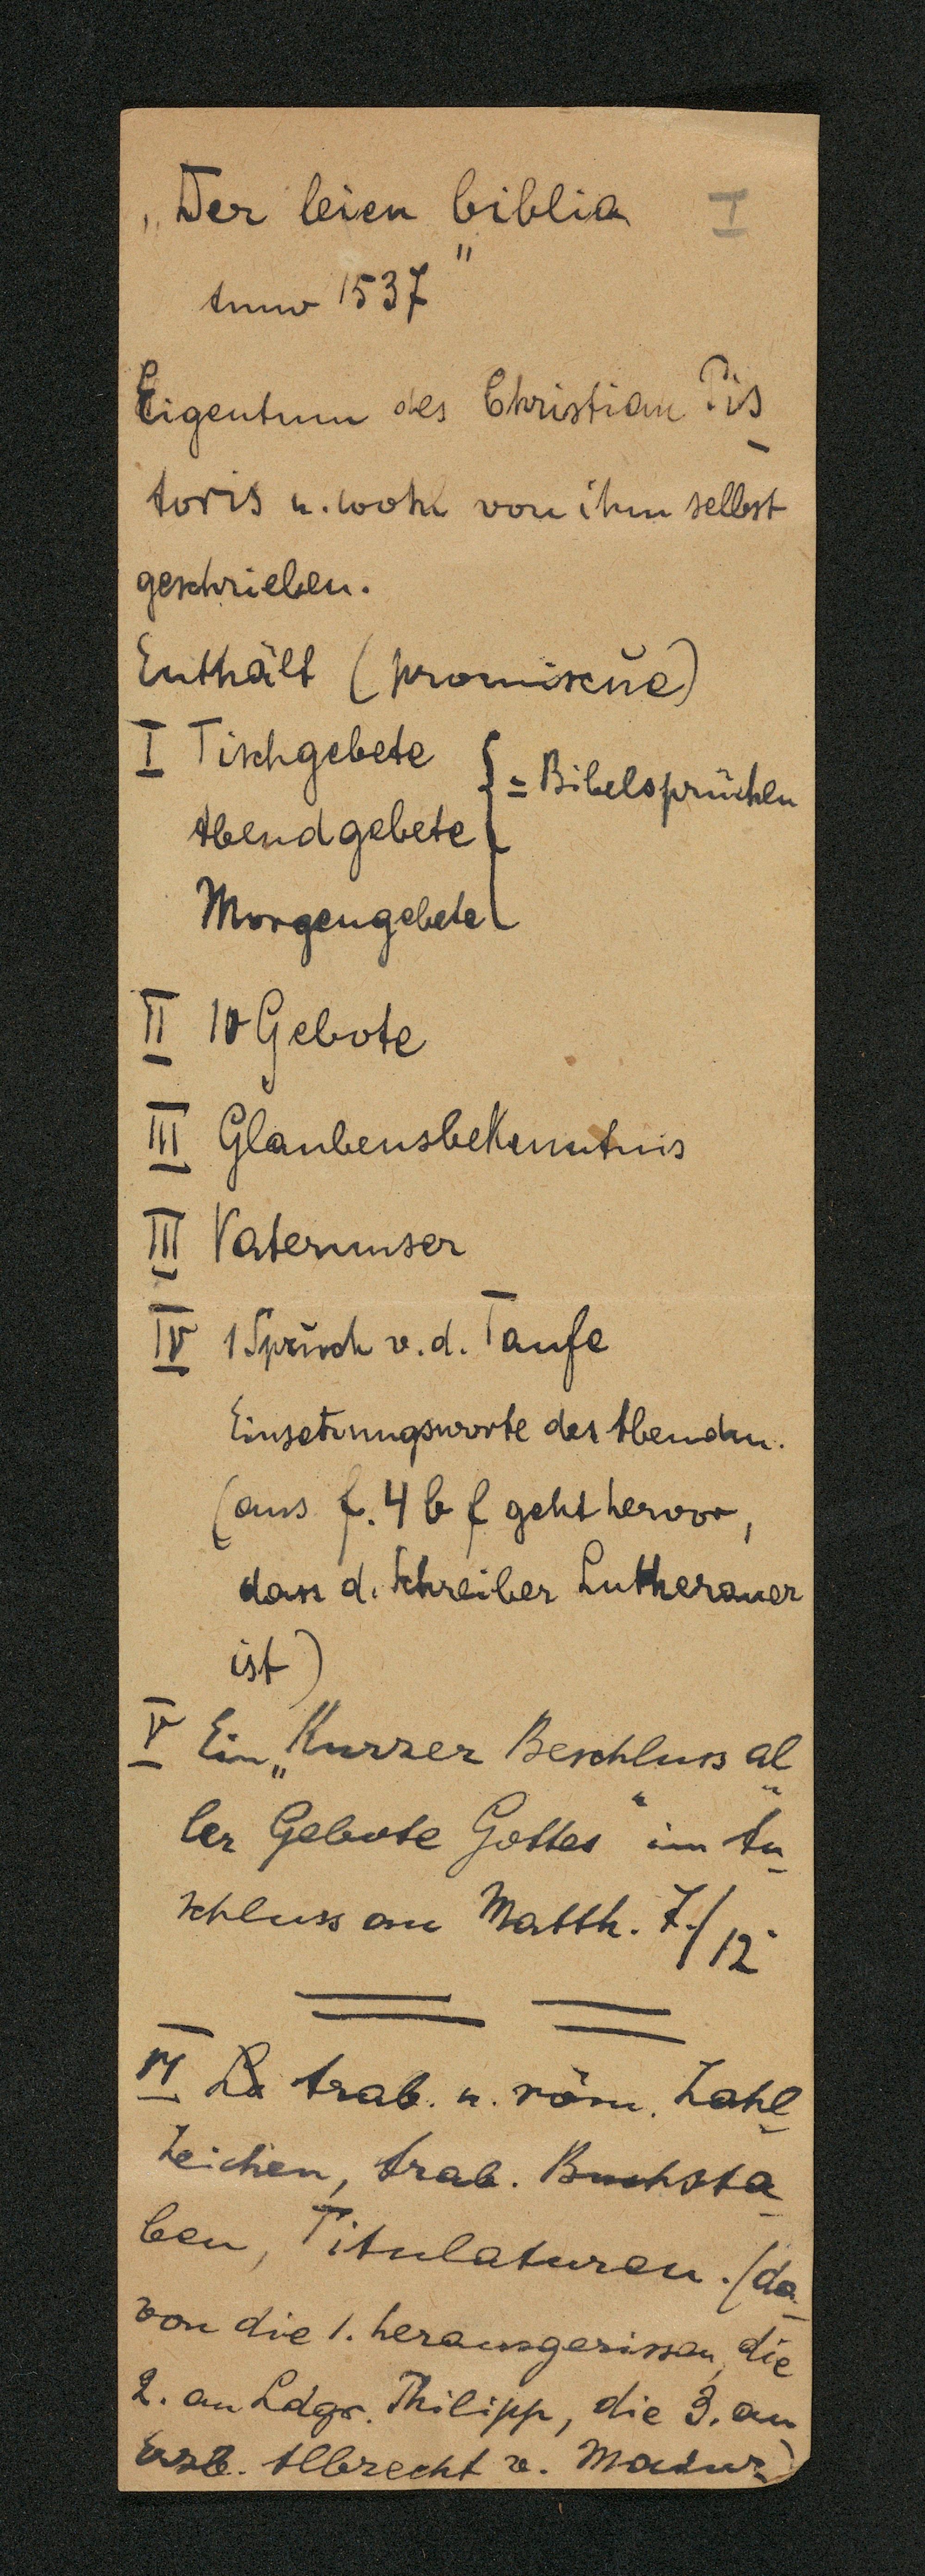 „Der leien biblia" I
Anno 1537
Eigentum des Christian Pis-
toris u. wohl von ihm selbst
geschrieben.
Enthält (promiscŭe)
I Tischgebete
Abendgebete { = Bibelsprüchen
Morgengebete
II 10 Gebote
III Glaubensbekenntnis
III Vaterunser
IV 1 Sprŭch v. d. Taufe
Einsetzungsworte des Abendm.
(aus f. 4 b f geht hervor,
dass d. Schreiber Lutheraner
ist)
V Ein „Kurzer Beschluss al-
ler Gebote Gottes" im An-
schluss an Matth. 7/12
VI Arab. u. röm. Zahl-
zeichen, Arab. Buchsta-
ben, Titulaturen. (da-
von die 1. herausgerissen, die
2. an Ldgr. Philipp, die 3. an
Erzb. Albrecht v. Mainz)